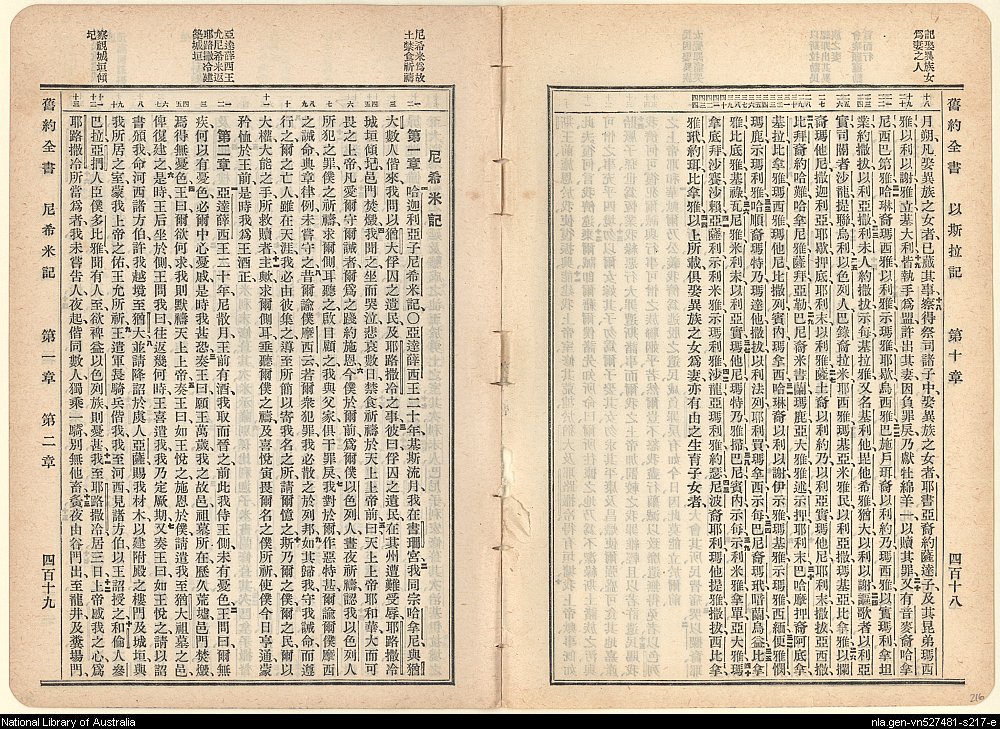 記娶異族女
爲妻之人
舊約全書 以斯拉記 第十章 四百十八
月朔凡娶異族之女者已藏其事察得祭司諸子中娶異族之女者耶書亞裔約薩達子及其昆弟瑪西
雅以利以謝雅立基大利皆執手爲盟許出其妻因負罪戾乃獻牡綿羊一以贖其罪又有音麥裔哈拿
尼西巴第雅哈琳裔瑪西雅以利雅示瑪雅耶歇烏西雅巴施戶珥裔以利約乃瑪西雅以實瑪利拿坦
業約撒拔以利亞撒利未人約撒拔示每基拉雅又名基利他毘他希雅猶大以利以謝謳歌者以利亞
實司閽者沙龍提聯烏利以色列人巴錄裔拉米耶西雅瑪基亞米雅民以利亞撒瑪基亞比拿雅以攔
裔瑪他尼撒迦利亞耶歇押底耶利末以利雅薩土裔以利約乃以利亞實瑪他尼耶利末撒拔亞西撒
比拜裔約哈難哈拿尼雅薩拜亞勒巴尼裔米書蘭瑪鹿亞大雅雅述示押耶利末巴哈摩押裔阿底拿
基拉比拿雅瑪西雅瑪他尼比撒列賓內瑪拿西哈琳裔以利以謝伊示雅瑪基雅示瑪雅西緬便雅憫
瑪鹿示瑪利雅哈順裔瑪特乃瑪達他撒拔以利法列耶利買瑪拿西示每巴尼裔瑪玳暗蘭烏益比拿
雅比底雅基祿瓦尼雅米利末以利亞實瑪他尼瑪特乃雅掃巴尼賓內示每示利米雅拿單亞大雅瑪
拿底拜沙賽沙賴亞薩利示利米雅示瑪利雅沙龍亞瑪利雅約瑟尼波裔耶利瑪他提雅撒拔西比拿
雅玳約珥比拿雅以上所載俱娶異族之女爲妻亦有由之生育子女者
尼希米爲故
土禁食祈禱
亞達薛西王
允尼希米返
耶路撒冷建
築城垣
察觀城垣傾
圮
尼希米記
第一章 哈迦利亞子尼希米記〇亞達薛西王二十年基斯流月我在書珊宮我同宗哈拿尼與猶
大數人偕來我問以猶大俘囚之遺民及耶路撒冷之事彼曰俘囚之遺民在其州遭難受辱耶路撒冷
城垣傾圮邑門焚燬我聞之坐而哭泣悲哀數日禁食祈禱於天上上帝前曰天上上帝耶和華大而可
畏之上帝凡愛爾守爾誡者爾爲之踐約施恩今僕於爾前爲爾僕以色列人晝夜祈禱認我以色列人
所犯之罪僕之祈禱求爾側耳聽之啟目顧之我與父家俱干罪戾我對於爾所作惡特甚爾諭爾僕摩西
之誡命典章律例未嘗守之昔爾諭僕摩西云若爾衆犯罪我必散之於列邦如其歸我守我誡命而遵
行之爾之亡人雖在天涯我必由彼集之導至所簡以寄我名之所請爾憶之斯乃爾之僕爾之民爾以
大權大能之手所救贖者主歟求爾側耳垂聽爾僕之禱及喜悅寅畏爾名之僕所祈使僕今日亨通蒙
矜恤於王前是時我爲王酒正
第二章 亞達薛西王二十年尼散月王前有酒我取而晉之前此我侍王側未有憂色王問曰爾無
疾何以有憂色必爾中心憂戚是時我甚恐奏王曰願王萬歲我之故邑祖墓所在歷久荒墟邑門焚燬
焉得無憂色王曰爾欲何求我則默禱天上上帝奏王曰如王悅之施恩於僕請遣我至猶大祖墓之邑
俾復建之是時王后坐於側王問我曰往返幾何時王喜遣我我乃定厥期又奏王曰如王悅之請以詔
書頒我命河西諸方伯許我越境至猶大並請降詔於虞人亞薩賜我材木以建附殿之樓門及城垣與
我所居之室蒙我上帝之佑王允所祈王遣軍長騎兵偕我我至河西見諸方伯以王詔授之和倫人參
巴拉亞捫人臣僕多比雅聞有人至欲裨益以色列族則憂甚我至耶路撒冷居三日上帝感我之心爲
耶路撒冷所當爲者我未嘗告人夜起偕同數人獨乘一騎別無他畜夤夜由谷門出至龍井及糞場門
舊約全書 尼希米記 第一章 第二章 四百十九
216
National Library of Australia
nla.gen-vn527481-s217-e